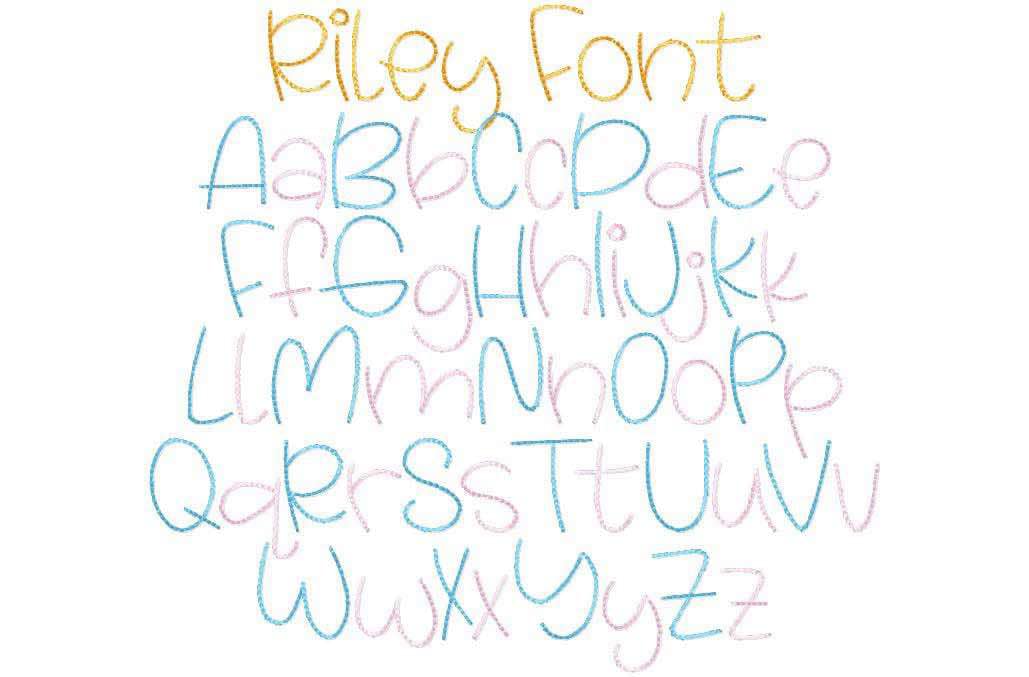 Riley Font
AaBbCcDdEe
FfGgHhIiJjKk
LlMmNnOoPp
QqRrSsTtUuVv
WwXxYyZz